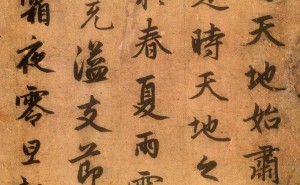 天地始肅
是時天地之
春夏雨
充溢支節
霜夜零旦